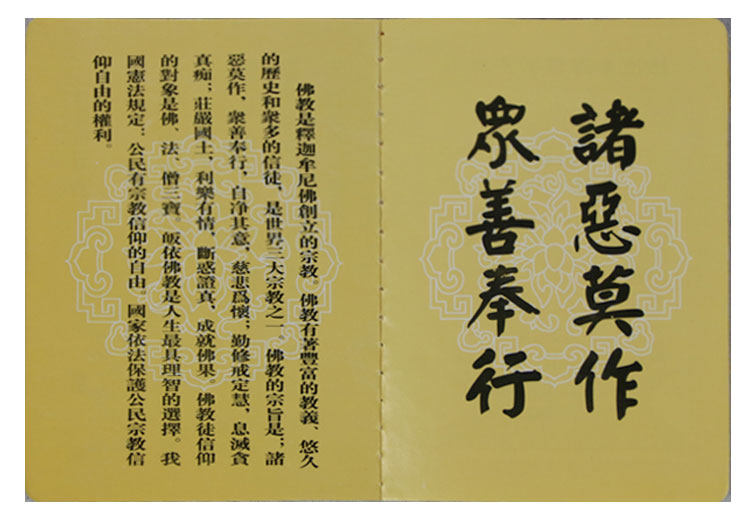 諸惡莫作
眾善奉行
佛教是釋迦牟尼佛創立的宗教。佛教有著豐富的教義、悠久
的歷史和衆多的信徒，是世界三大宗教之一。佛教的宗旨是；諸
惡莫作，衆善奉行，自净其意，慈悲爲懷；勤修戒定慧，息滅貪
真痴；莊嚴國土，利樂有情，斷惑證真，成就佛果。佛教徒信仰
的對象是佛、法、僧三寶，皈依佛教是人生最具理智的選擇。我
國憲法規定：公民有宗教信仰的自由。國家依法保護公民宗教信
仰自由的權利。